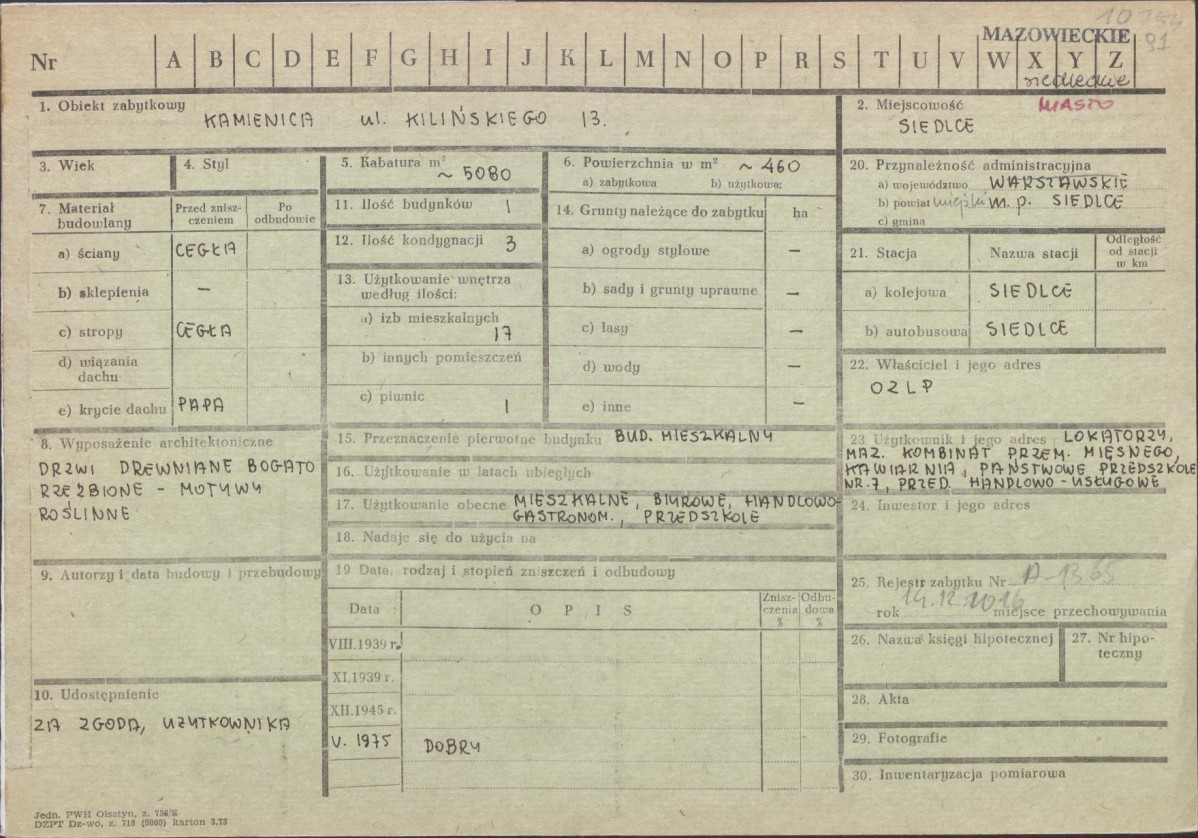 10
MAZOWIECKIE
91
Nr A B C D E F G H I J K L M N O P R S T U V W X Y Z
siedleckie
1. Obiekt zabytkowy
KAMIENICA ul. KILIŃSKIEGO 13.
2. Miejscowość MIASTO
SIEDLCE
3. Wiek
4. Styl
5. Kabatura m³
~ 5080
6. Powierzchnia w m² ~ 460
a) zabytkowa b) użytkowa:
7. Materiał budowlany
Przed zniszczeniem
Po odbudowie
a) ściany CEGŁA
b) sklepienia –
c) stropy CEGŁA
d) wiązania dachu
e) krycie dachu PAPA
8. Wyposażenie architektoniczne
DRZWI DREWNIANE BOGATO
RZEŹBIONE - MOTYWY
ROŚLINNE
9. Autorzy i data budowy i przebudowy
10. Udostępnienie
ZA ZGODĄ, UŻYTKOWNIKA
11. Ilość budynków 1
12. Ilość kondygnacji 3
13. Użytkowanie wnętrza
według ilości:
a) izb mieszkalnych
17
b) innych pomieszczeń
c) piwnic
1
14. Grunty należące do zabytku ha
a) ogrody stylowe –
b) sady i grunty uprawne –
c) lasy –
d) wody –
e) inne –
15. Przeznaczenie pierwotne budynku BUD. MIESZKALNY
16. Użytkowanie w latach ubiegłych
17. Użytkowanie obecne MIESZKALNE, BIUROWE, HANDLOWO-
GASTRONOM., PRZEDSZKOLE
18. Nadaje się do użycia na
19 Data, rodzaj i stopień zniszczeń i odbudowy
Data O P I S Zniszczenia % Odbudowa %
VIII.1939 r.
XI.1939 r.
XII.1945 r.
V. 1975 DOBRY
20. Przynależność administracyjna
a) województwo WARSZAWSKIE
b) powiat miejski m. p. SIEDLCE
c) gmina
21. Stacja Nazwa stacji Odległość od stacji w km
a) kolejowa SIEDLCE
b) autobusowa SIEDLCE
22. Właściciel i jego adres
OZLP
23 Użytkownik i jego adres LOKATORZY,
MAZ. KOMBINAT PRZEM. MIĘSNEGO,
KAWIARNIA, PAŃSTWOWE PRZEDSZKOLE
NR.7, PRZED. HANDLOWO-USŁUGOWE
24. Inwestor i jego adres
25. Rejestr zabytku Nr A-1365
rok 14.12.2016 miejsce przechowywania
26. Nazwa księgi hipotecznej
27. Nr hipoteczny
28. Akta
29. Fotografie
30. Inwentaryzacja pomiarowa
Jedn. PWH Olsztyn, z. 756/E
DZPT Dz-wo, z. 718 (5000) karton 3.73